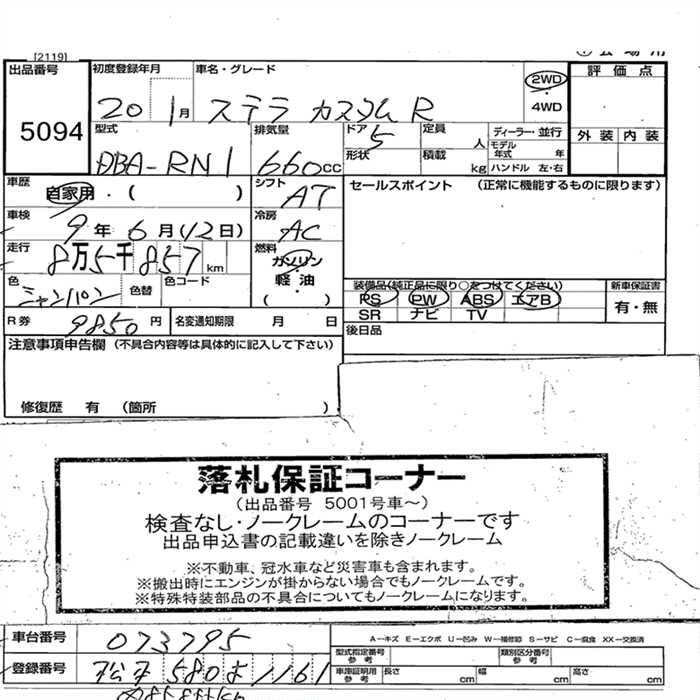 [2119]
出品番号
5094
初度登録年月
20 1月
車名・グレード
ステラ カスタム R
2WD
・
4WD
評価点
外装 内装
型式
DBA-RN1
排気量
660cc
ドア
5
形状
定員
人
積載
kg
ディーラー・並行
モデル年式 年
ハンドル 左・右
車歴
自家用・( )
シフト
AT
車検
9年6月(12日)
冷房
AC
走行
8万5千857km
燃料
ガソリン
・
軽油
( )
色
シャンパン
色替
色コード
R券
9850円
名変通知期限 月 日
セールスポイント (正常に機能するものに限ります)
装備品(純正品に限り○をつけてください)
PS PW ABS エアB
SR ナビ TV
新車保証書
有・無
後日品
注意事項申告欄 (不具合内容等は具体的に記入して下さい)
修復歴 有 (箇所 )
落札保証コーナー
(出品番号 5001号車~)
検査なし・ノークレームのコーナーです
出品申込書の記載違いを除きノークレーム
※不動車、冠水車など災害車も含まれます。
※搬出時にエンジンが掛からない場合でもノークレームです。
※特殊特装部品の不具合についてもノークレームになります。
車台番号
073795
登録番号
松本 580 ま 1161
A-キズ E-エクボ U-凹み W-補修跡 S-サビ C-腐食 XX-交換済
型式指定番号
参考
類別区分番号
参考
車庫証明用
参考
長さ cm
幅 cm
高さ cm